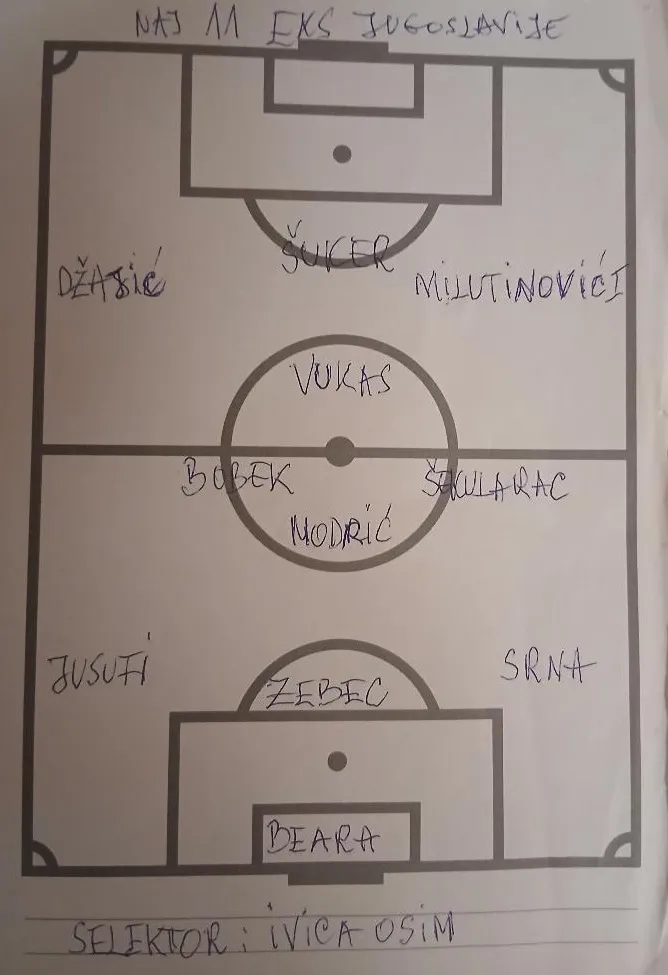 NAJ 11 EKS JUGOSLAVIJE
ŠUKER
DŽAJIĆ
MILUTINOVIĆI
VUKAS
BOBEK
ŠEKULARAC
MODRIĆ
JUSUFI
SRNA
ZEBEC
BEARA
SELEKTOR: IVICA OSIM